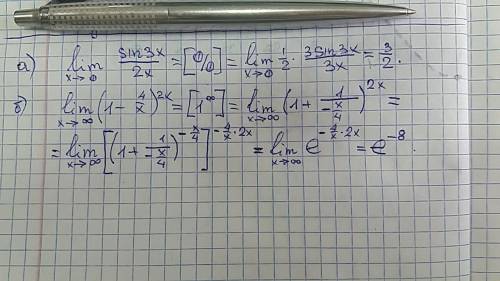 а) lim x→0 sin3x/2x = [0/0] = lim x→0 1/2 · 3sin3x/3x = 3/2.
б) lim x→∞ (1 - 4/x)^2x = [1^∞] = lim x→∞ (1 + 1/(-x/4))^2x =
= lim x→∞ [(1 + 1/(-x/4))^(-x/4)]^(-4/x · 2x) = lim x→∞ e^(-4/x · 2x) = e^-8.